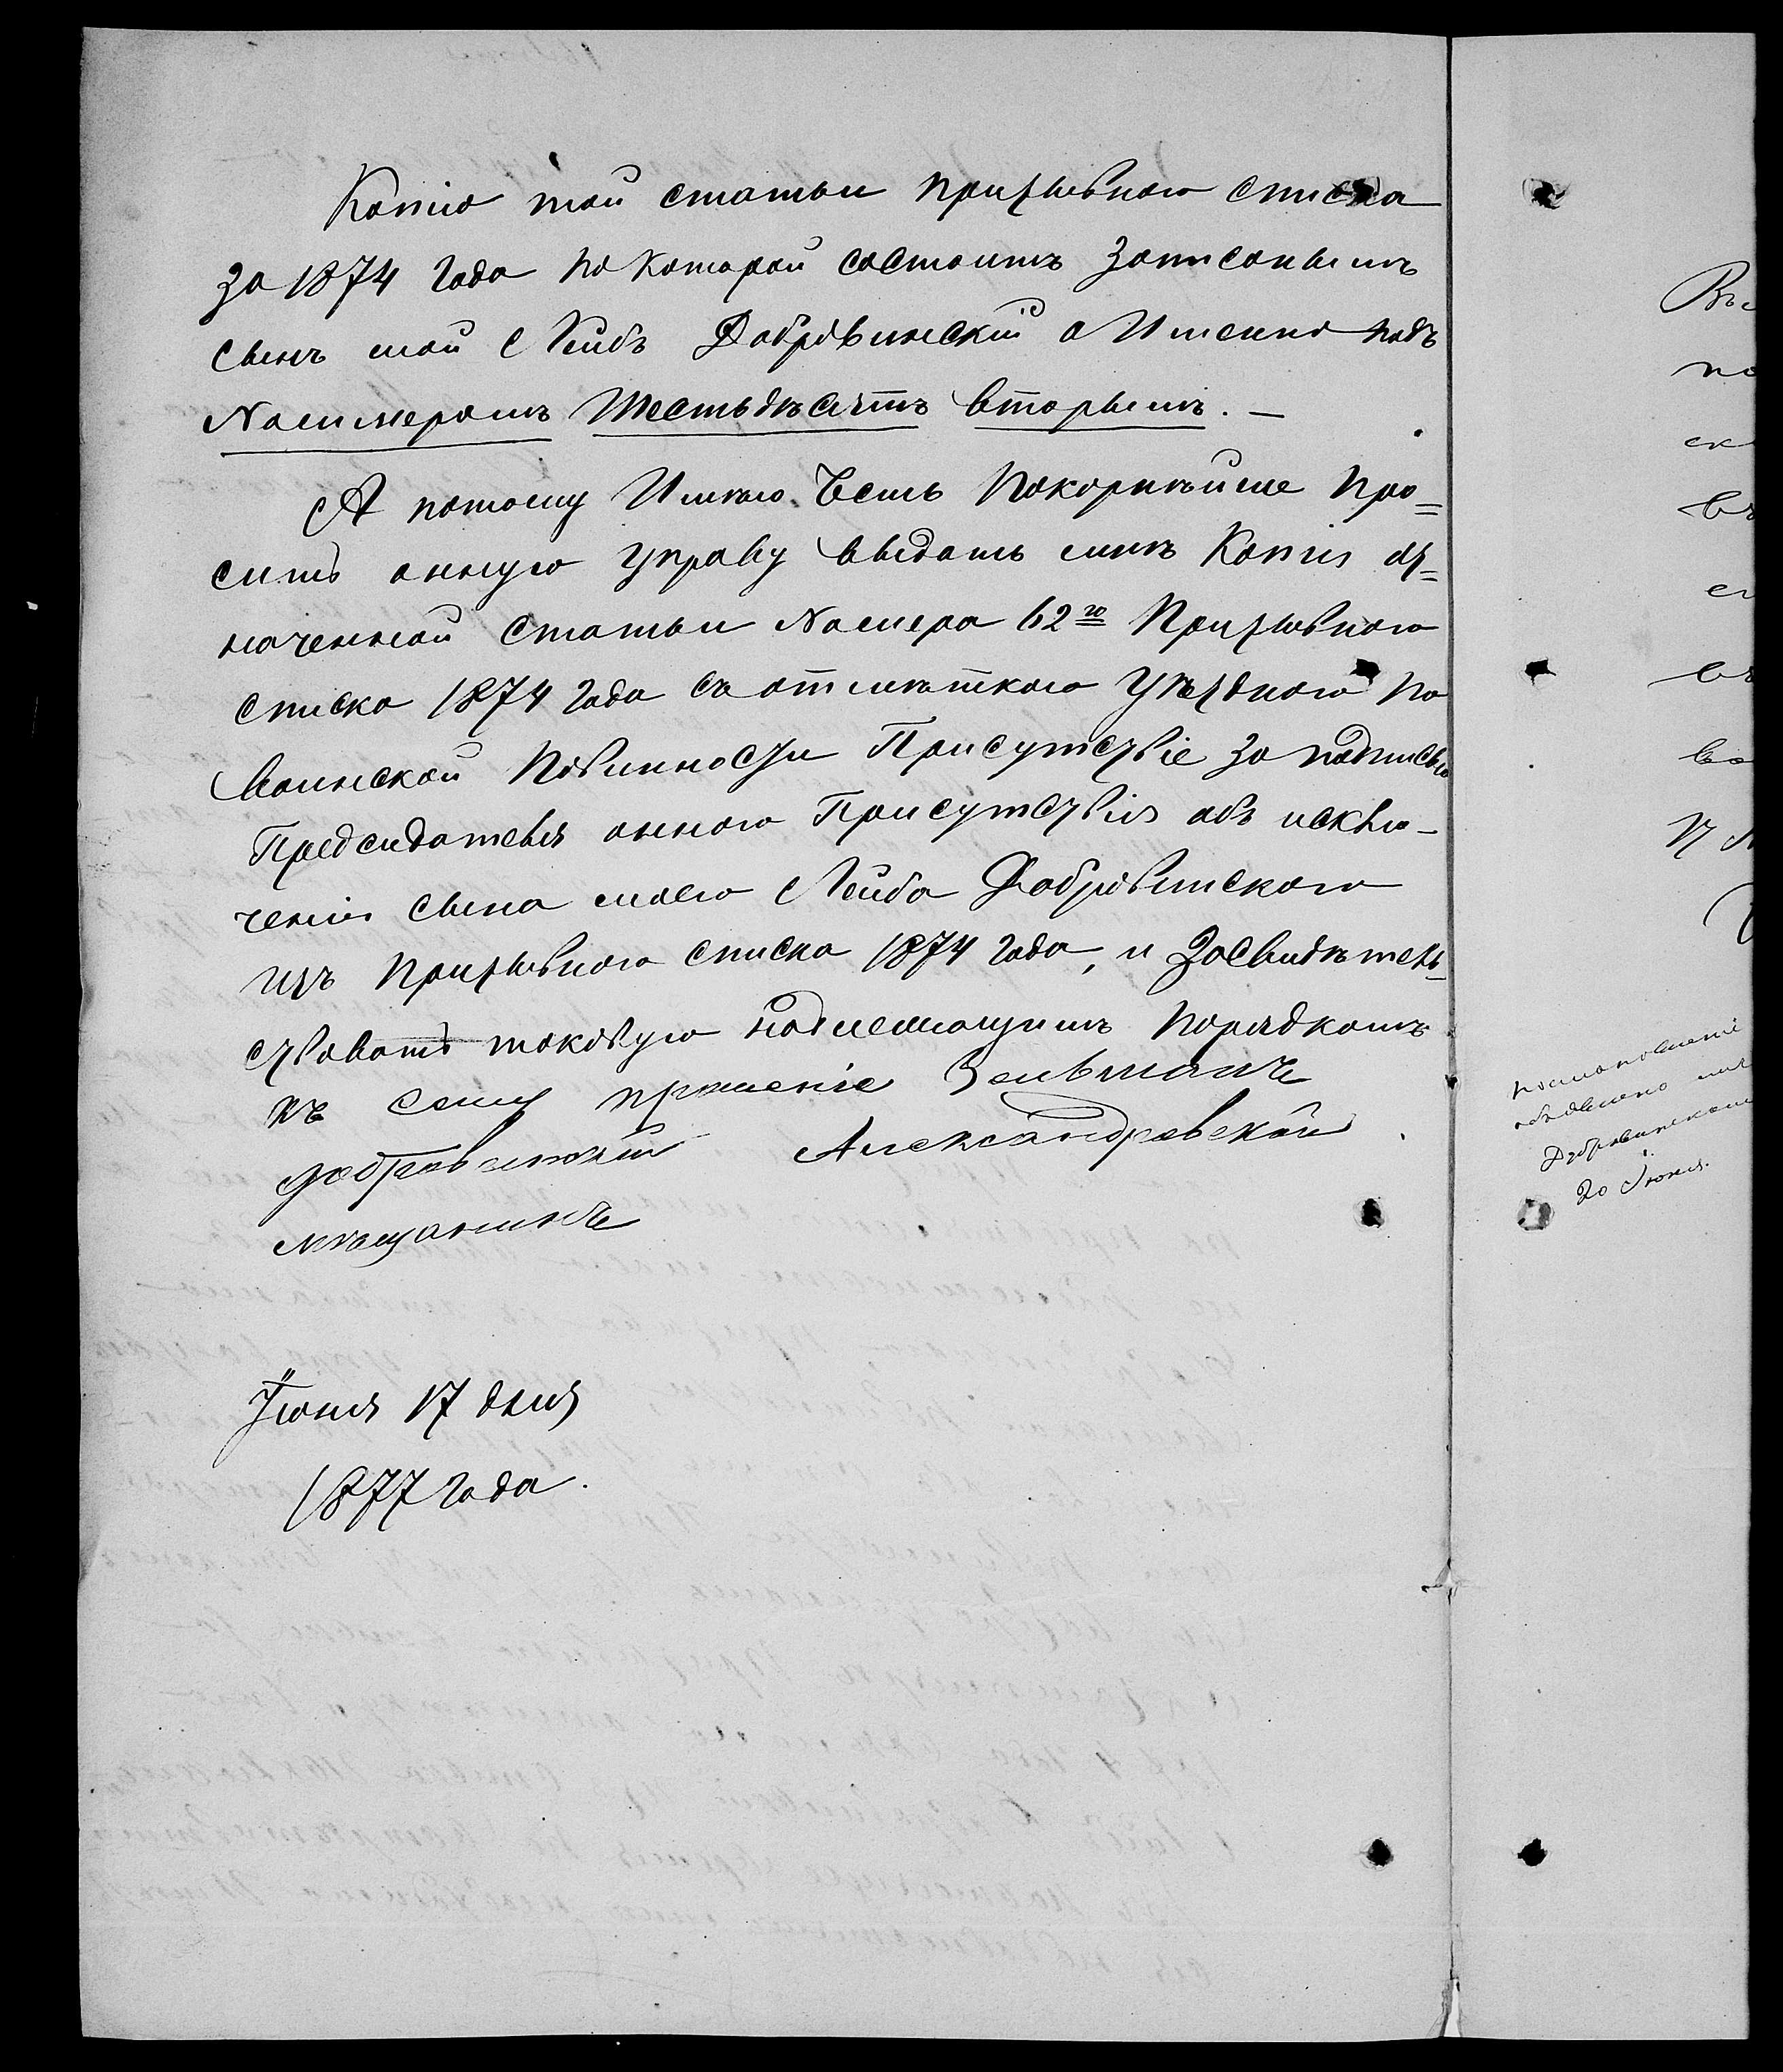 Копію той статьи призывного списка
за 1874 года по которой состоитъ записанымъ
сынъ мой Лейбъ Добровинскій а Именно подъ
Номмеромъ Шестьдѣсятъ вторымъ. —
А потому Имѣю Честь Покорнѣйше Про=
сить онную Управу выдать мнѣ Копію оз=
наченной статьи Номера 62го Призывного
списка 1874 года съ отмѣткаю Уѣзднаго по
воинской Повинности Присутствіе за подписью
Предсидателя онного Присутствія объ исклю-
ченіи сына моего Лейба Добровинского
изъ Призывного списка 1874 года, и Засвидѣтель-
ствовать таковую надлежащимъ порядкомъ
къ сему прошеніе Зельманъ
Добровинский Александровской
мѣщанинъ
Іюня 17 дня
1877 года.
Въ
по
ск
въ
въ
во
постановленіе
объявлено
Добровинском
20 Іюня.